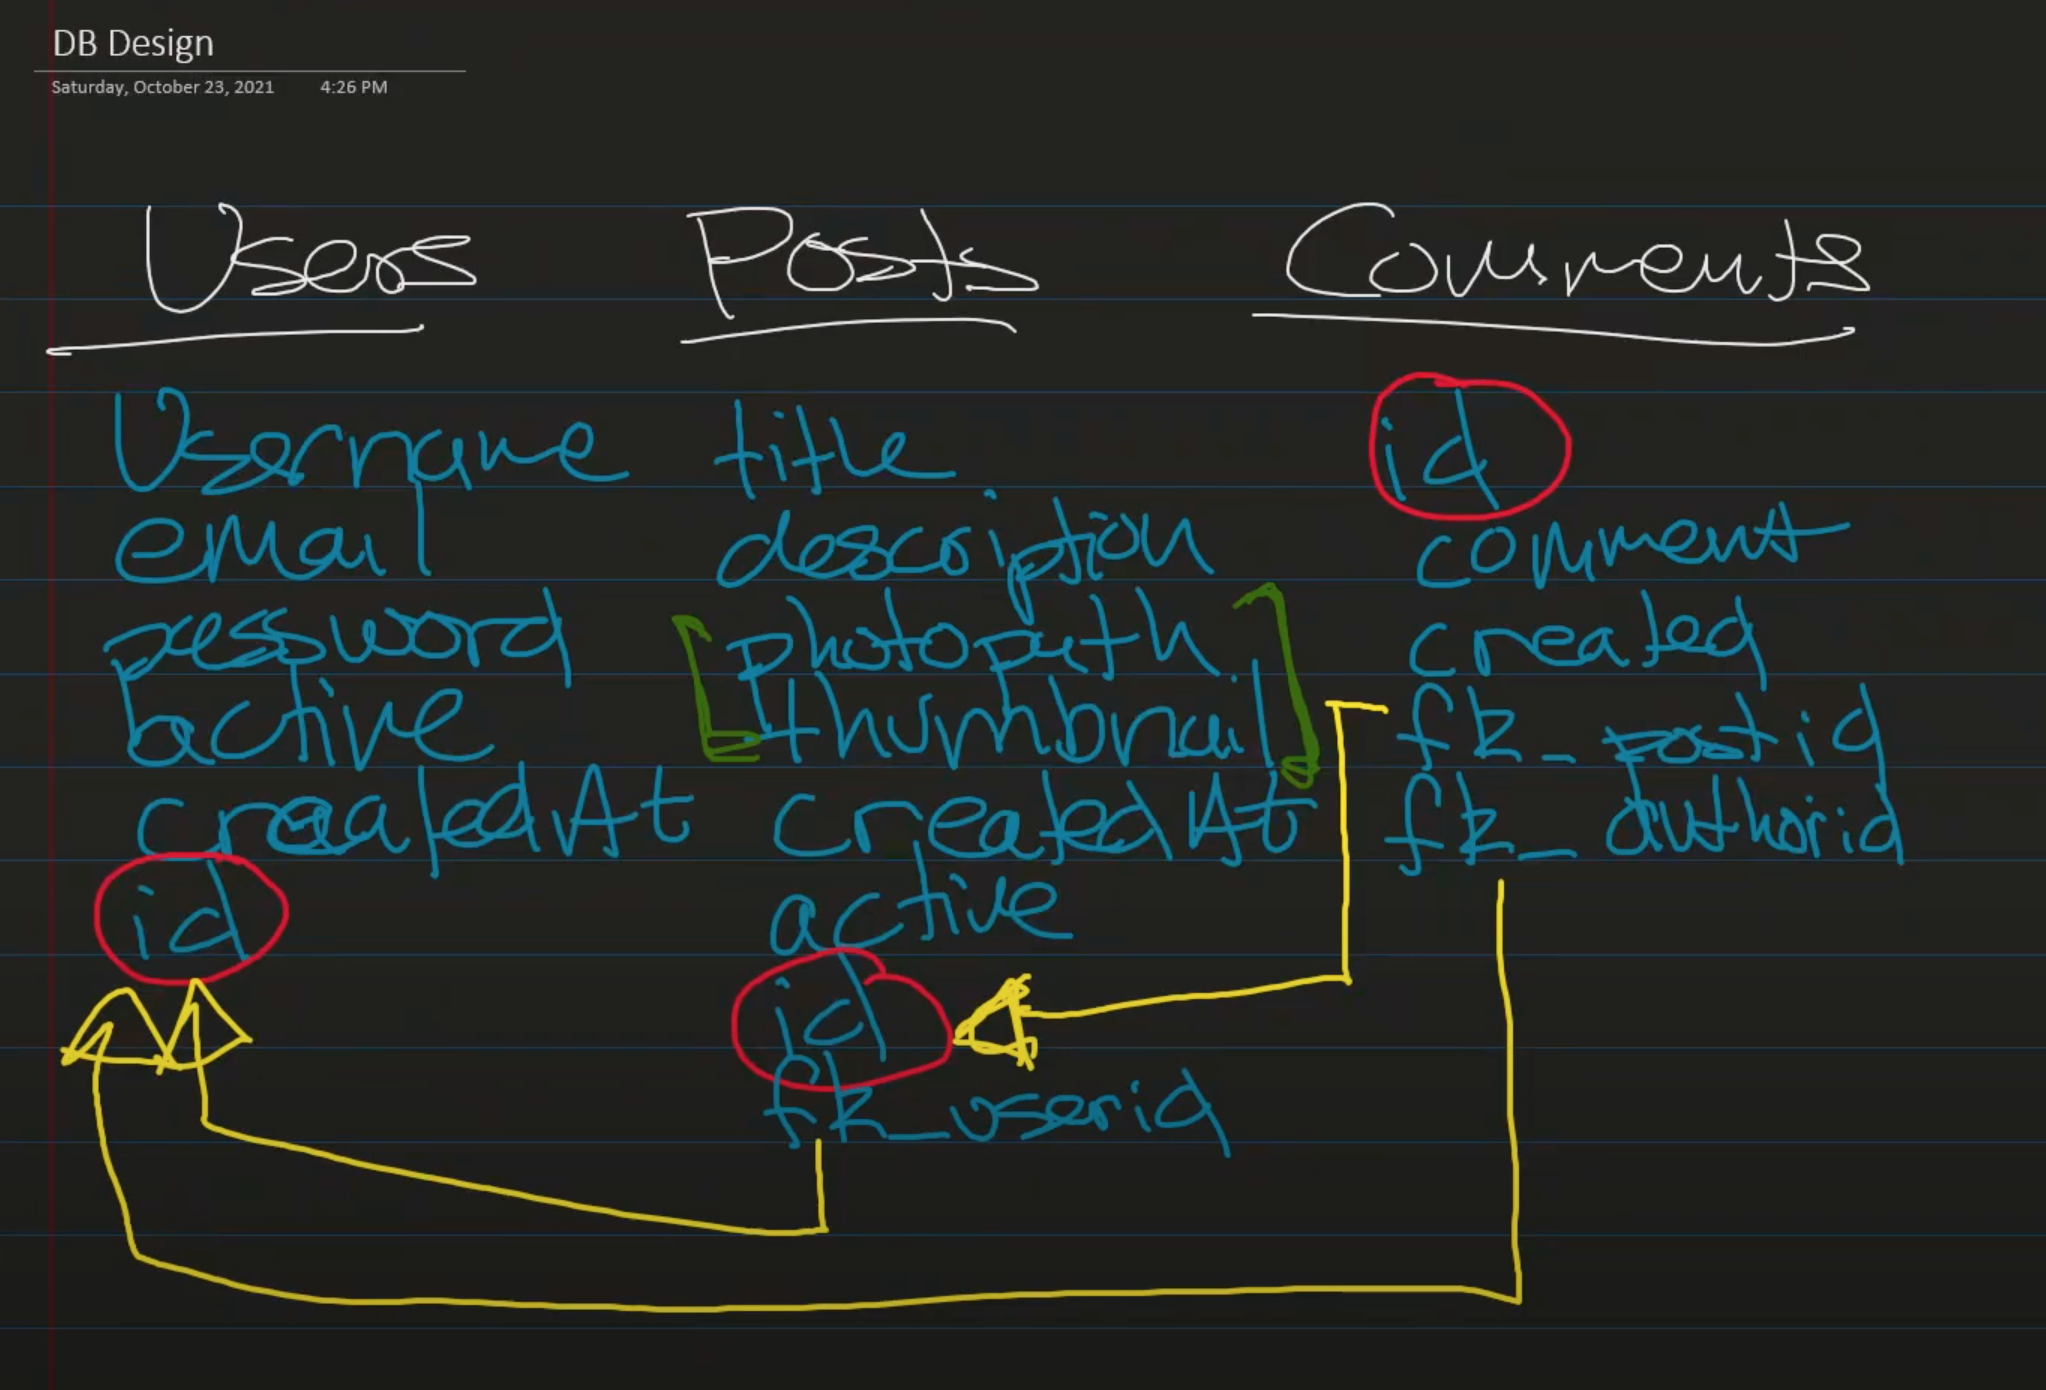 DB Design
Saturday, October 23, 2021 4:26 PM
Users
Username
email
password
active
createdAt
id
Posts
title
description
photopath
thumbnail
createdAt
active
id
fk_userid
Comments
id
comment
created
fk_postid
fk_authorid